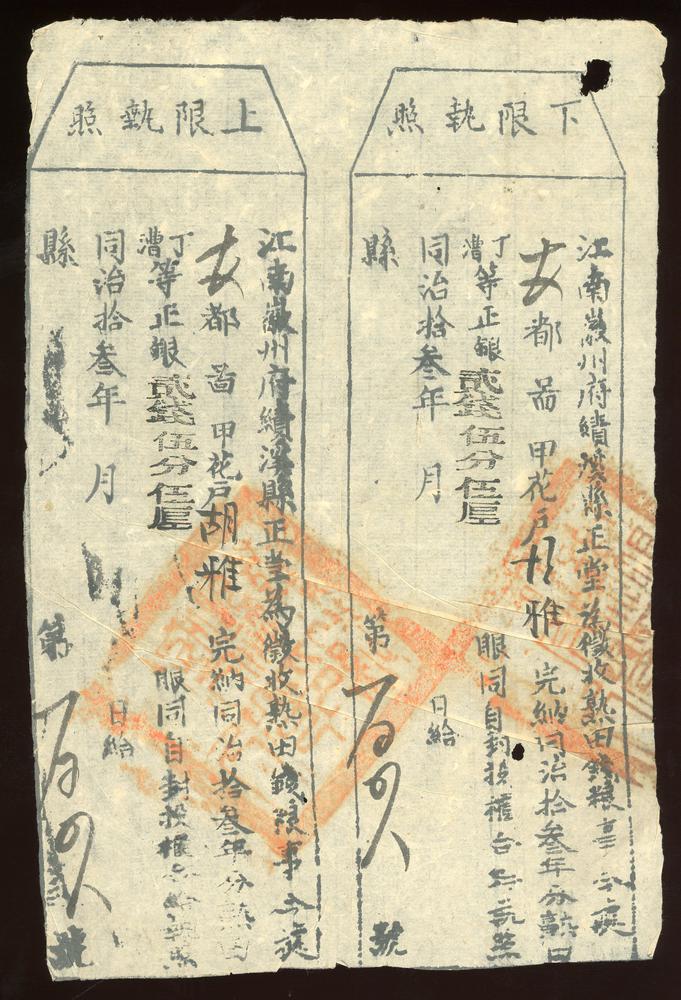 下限執照
江南徽州府績溪縣正堂為徵收熟田錢粮事今據
都 啚 甲花戶胡雅 完納同治拾叁年分熟田
丁漕等正銀貳錢伍分伍厘 眼同自封投櫃合給執照
同治拾叁年 月 日給
縣 第 號
上限執照
江南徽州府績溪縣正堂為徵收熟田錢粮事今據
都 啚 甲花戶胡雅 完納同治拾叁年分熟田
丁漕等正銀貳錢伍分伍厘 眼同自封投櫃合給執照
同治拾叁年 月 日給
縣 第 號